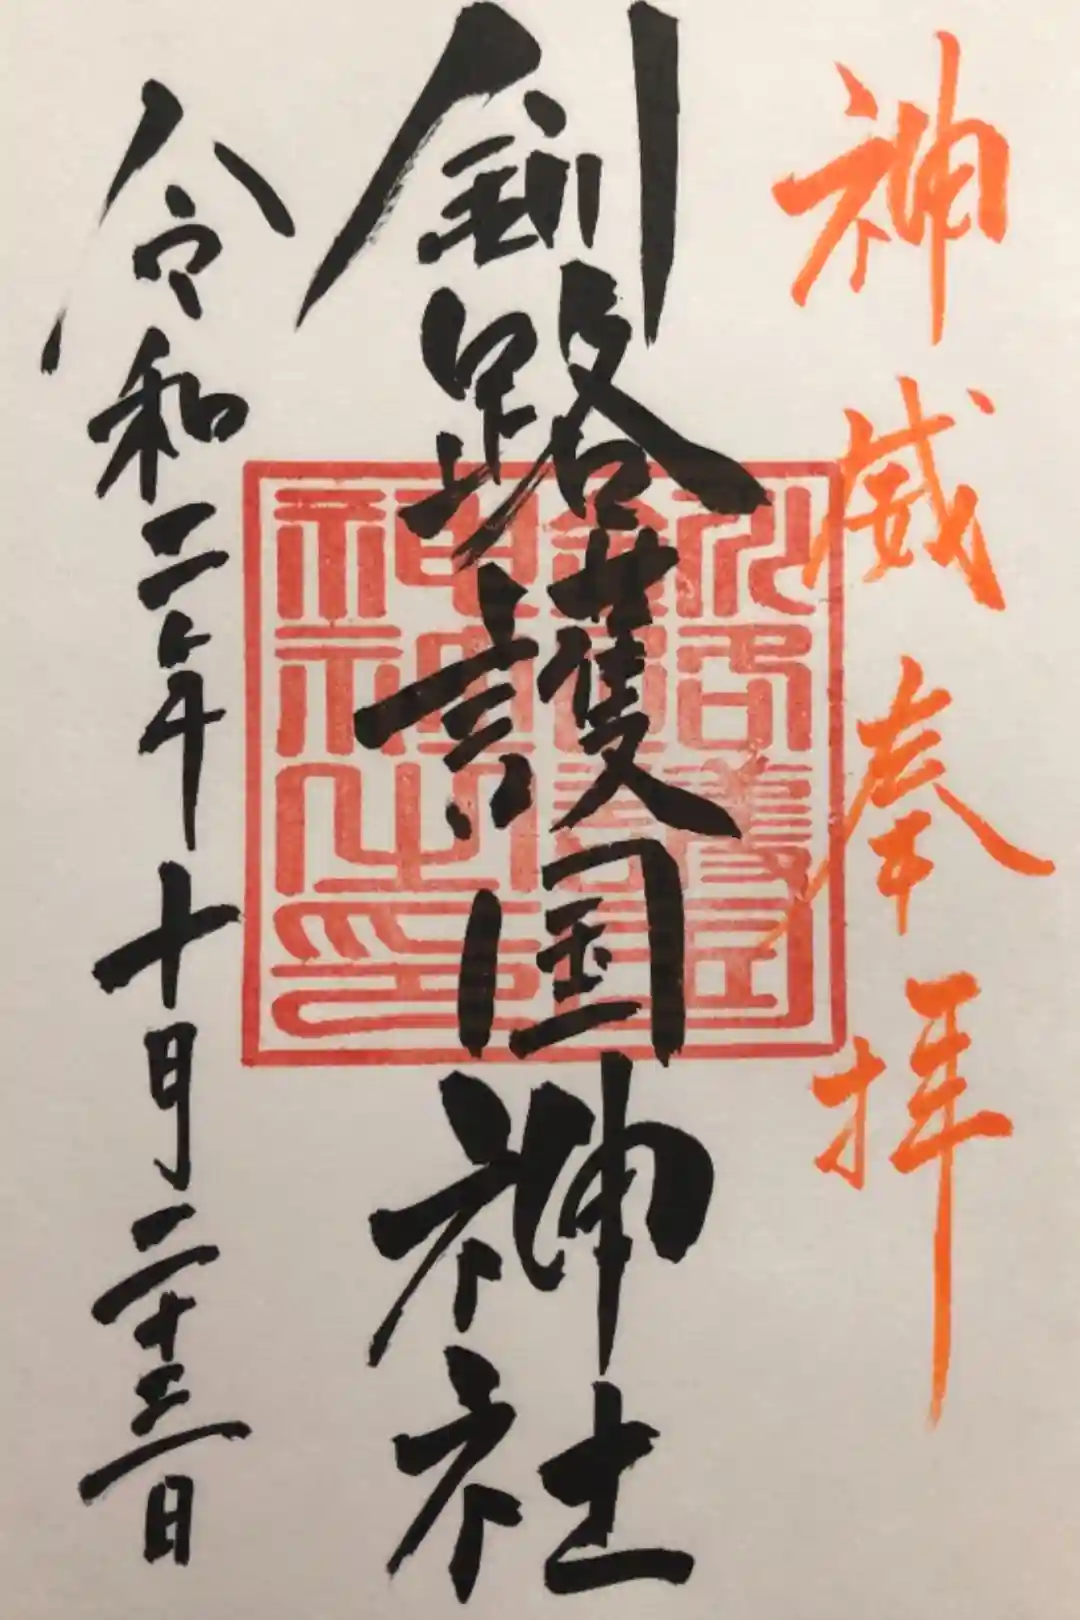 神威奉拝
釧路護国神社
釧路護國
神社之印
令和二年十月二十三日